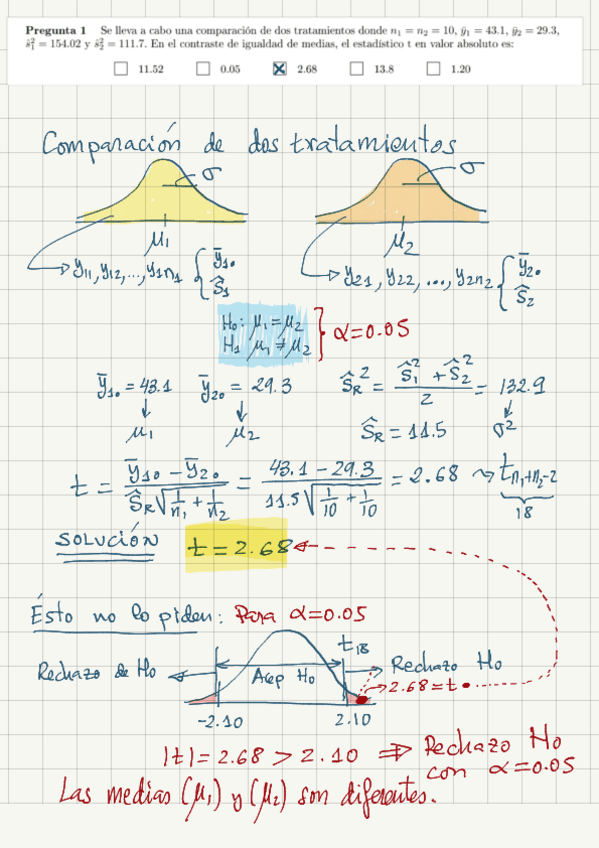 Pregunta 1 Se lleva a cabo una comparación de dos tratamientos donde n₁ = n₂ = 10, ȳ₁ = 43.1, ȳ₂ = 29.3,
ŝ₁² = 154.02 y ŝ₂² = 111.7. En el contraste de igualdad de medias, el estadístico t en valor absoluto es:
☐ 11.52 ☐ 0.05 ☒ 2.68 ☐ 13.8 ☐ 1.20
Comparación de dos tratamientos
σ σ
μ₁ μ₂
y₁₁, y₁₂, ..., y₁n₁ { ȳ₁• Ŝ₁
y₂₁, y₂₂, ..., y₂n₂ { ȳ₂• Ŝ₂
H₀: μ₁ = μ₂
H₁ μ₁ ≠ μ₂ } α=0.05
ȳ₁• = 43.1 ȳ₂• = 29.3 Ŝ_R² = (Ŝ₁² + Ŝ₂²)/2 = 132.9
↓ μ₁ ↓ μ₂ Ŝ_R = 11.5 ↓ σ²
t = (ȳ₁• − ȳ₂•)/(Ŝ_R√(1/n₁ + 1/n₂)) = (43.1 − 29.3)/(11.5√(1/10 + 1/10)) = 2.68 ⤳ t_n₁+n₂−2
18
SOLUCIÓN t = 2.68
Ésto no lo piden: Para α=0.05
t₁₈
Rechazo de H₀ ← Acep H₀ → Rechazo H₀
→ 2.68 = t
-2.10 2.10
|t| = 2.68 > 2.10 ⇒ Rechazo H₀
con α=0.05
Las medias (μ₁) y (μ₂) son diferentes.